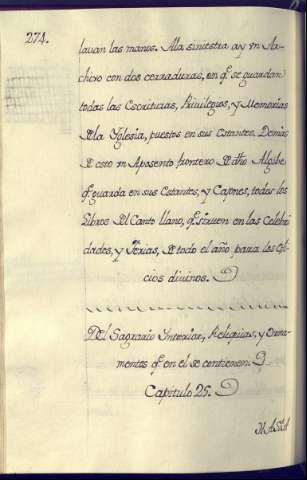 274.
lauan las manos. Ala siniestra ay vn Ar-
chivo con dos cerraduras, en q̃ se guardan
todas las Escrituras, Privilegios, y Memorias
de la Yglesia, puestos en sus Estantes. Demas
de esto vn Aposento frontero de dho Algibe
q̃ guarda en sus Estantes, y Caxones, todos los
Libros del Canto llano, q̃ siruen en las Celebri
dades, y Ferias, de todo el año para los ofi-
cios divinos.
Del Sagrario Interior, Reliquias, y Orna-
mentos q̃ en el se contienen.
Capitulo 25.